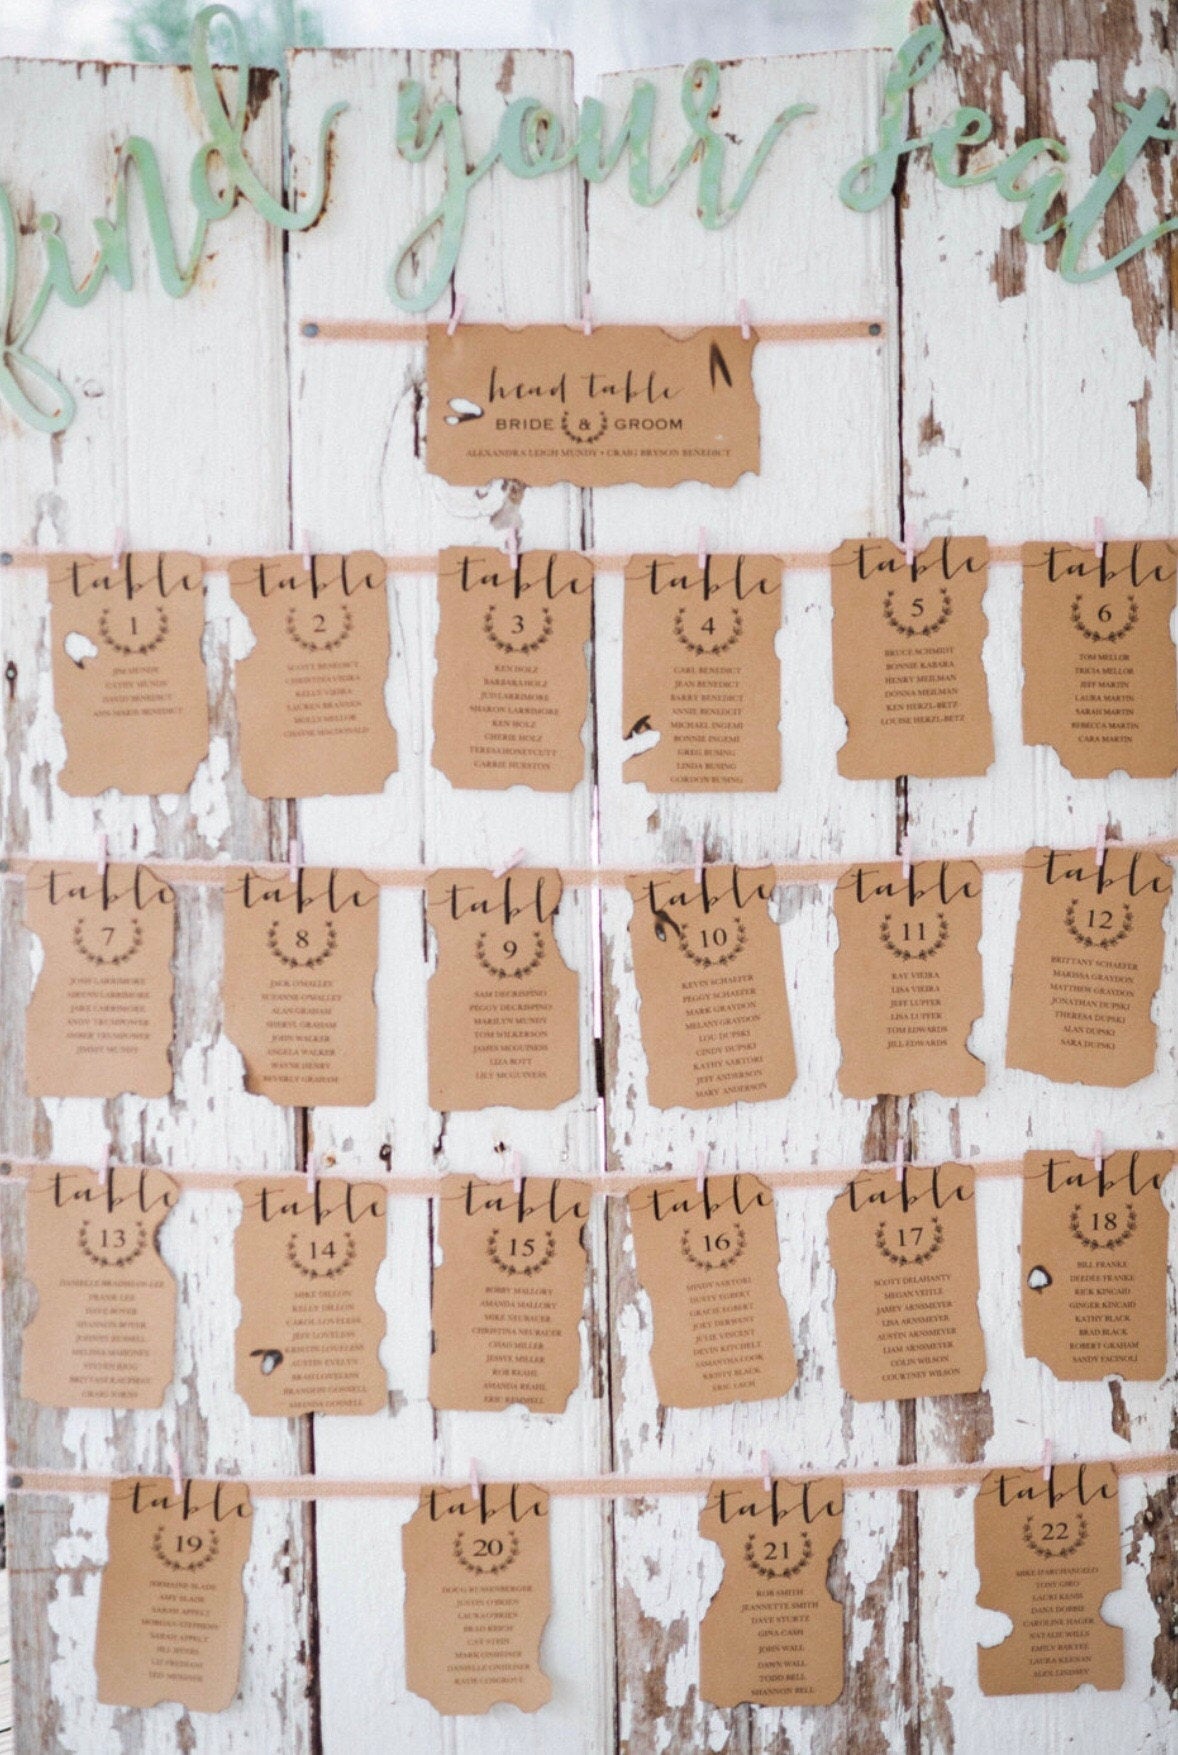 find your seat
head table
BRIDE & GROOM
ALEXANDRA LEIGH MUNDY • CRAIG BRYSON BENEDICT
table
1
JIM MUNDY
CATHY MUNDY
DAVID BENEDICT
ANN MARIE BENEDICT
table
2
SCOTT BENEDICT
CHRISTINA VIEIRA
KELLY VIEIRA
LAUREN BRANDES
MOLLY MELLOR
CHAYSE MACDONALD
table
3
KEN HOLZ
BARBARA HOLZ
JUD LARRIMORE
SHARON LARRIMORE
KEN HOLZ
CHERIE HOLZ
TERESA HONEYCUTT
CARRIE HURSTON
table
4
CARL BENEDICT
JEAN BENEDICT
BARRY BENEDICT
ANNIE BENEDCIT
MICHAEL INGEMI
BONNIE INGEMI
GREG BUSING
LINDA BUSING
GORDON BUSING
table
5
BRUCE SCHMIDT
BONNIE KABARA
HENRY MEILMAN
DONNA MEILMAN
KEN HERZL-BETZ
LOUISE HERZL-BETZ
table
6
TOM MELLOR
TRICIA MELLOR
JEFF MARTIN
LAURA MARTIN
SARAH MARTIN
REBECCA MARTIN
CARA MARTIN
table
7
JOSH LARRIMORE
LARRIMORE
JAKE LARRIMORE
ANDY TRUMPOWER
AMBER TRUMPOWER
JIMMY MUNDY
table
8
JACK O'MALLEY
SUZANNE O'MALLEY
ALAN GRAHAM
SHERYL GRAHAM
JOHN WALKER
ANGELA WALKER
WAYNE HENRY
BEVERLY GRAHAM
table
9
SAM DECRISPINO
PEGGY DECRISPINO
MARILYN MUNDY
TOM WILKERSON
JAMES MCGUINESS
LIZA BOTT
LILY MCGUINESS
table
10
KEVIN SCHAEFER
PEGGY SCHAEFER
MARK GRAYDON
MELANY GRAYDON
LOU DUPSKI
CINDY DUPSKI
KATHY SARTORI
JEFF ANDERSON
MARY ANDERSON
table
11
RAY VIEIRA
LISA VIEIRA
JEFF LUPFER
LISA LUPFER
TOM EDWARDS
JILL EDWARDS
table
12
BRITTANY SCHAEFER
MARISSA GRAYDON
MATTHEW GRAYDON
JONATHAN DUPSKI
THERESA DUPSKI
ALAN DUPSKI
SARA DUPSKI
table
13
DANIELLE BRADSHAW-LEE
FRANK LEE
DAVE BOYER
SHANNON BOYER
JOHNNY RUSSELL
MELISSA
STEVEN
BRITTANY
CRAIG
table
14
MIKE DILLON
KELLY DILLON
CAROL LOVELESS
JEFF LOVELESS
KRISTIN LOVELESS
AUSTIN EVELYN
BRAD LOVELESS
BRANSON GOSNELL
AMANDA GOSNELL
table
15
BOBBY MALLORY
AMANDA MALLORY
MIKE NEUBAUER
CHRISTINA NEUBAUER
CHAD MILLER
JESSYE MILLER
ROB KEAHL
AMANDA KEAHL
ERIC KEMMELL
table
16
MINDY SARTORI
DUSTY EGBERT
GRACIE EGBERT
JOEY DERWENT
JULIE VINCENT
DEVIN KITCHELT
SAMANTHA COOK
KRISTY BLACK
ERIC LACH
table
17
SCOTT DELAHANTY
MEGAN VEITLE
JAMEY ARNSMEYER
LISA ARNSMEYER
AUSTIN ARNSMEYER
LIAM ARNSMEYER
COLIN WILSON
COURTNEY WILSON
table
18
BILL FRANKE
DEEDEE FRANKE
RICK KINCAID
GINGER KINCAID
KATHY BLACK
BRAD BLACK
ROBERT GRAHAM
SANDY FACINOLI
table
19
JERMAINE SLADE
AMY SLADE
SARAH APPELT
MORGAN STEPHENS
SARAH APPELT
table
20
DOUG
JUSTIN O'BRIEN
LAURA O'BRIEN
BRAD REICH
CAT STEIN
MARK ONHEISER
DANIELLE ONHEISER
KATIE COSGROVE
table
21
ROB SMITH
JEANNETTE SMITH
DAVE STURTZ
GINA CASH
JOHN WALL
DAWN WALL
TODD BELL
SHANNON BELL
table
22
MIKE D'ARCHANGELO
TONY GIRO
LAURI KENIS
DANA DOBBIE
CAROLINE HAGER
NATALIE WILLS
EMILY BARTEL
LAURA KEENAN
ALEX LINDSEY